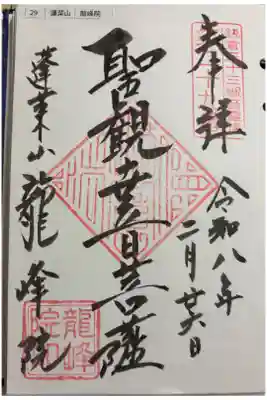 29 蓬莱山 龍峰院
奉拝
令和八年
二月廿六日
聖観世音菩薩
蓬莱山龍峰院
龍峰院印